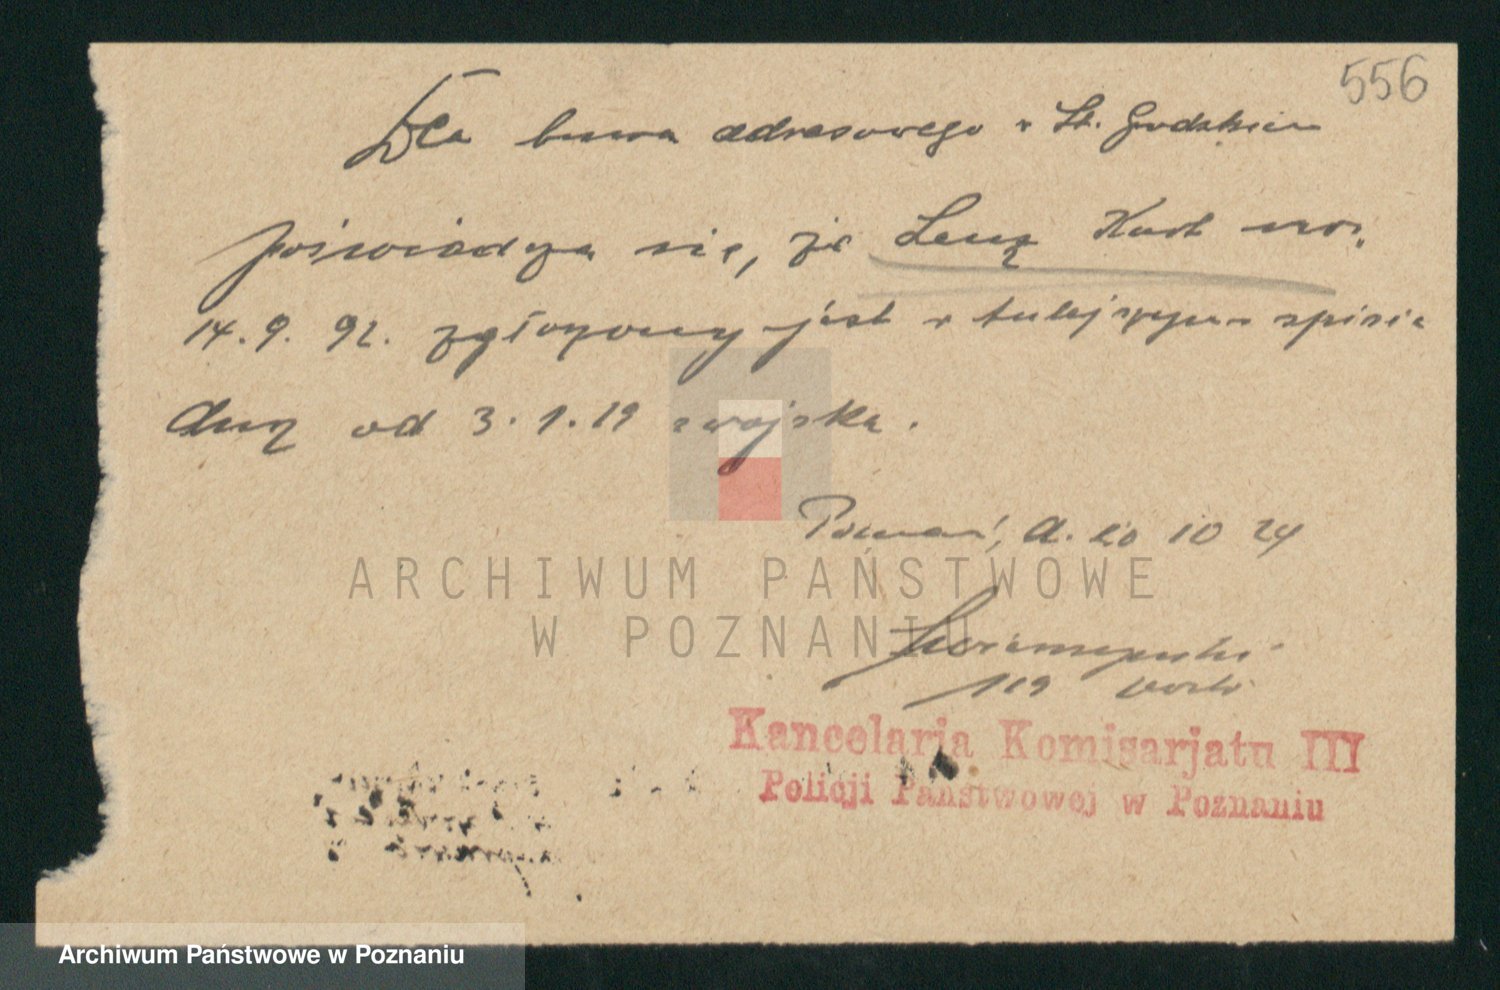 556
Dla biura adresowego w St. Grodzkiem
poświadcza się, że Lenz Kurt uro.
14.9.92. zgłoszony jest w tutejszym spisie
dusz od 3.1.19 z wojska.
Poznań, d. 20 10 24
119
Kancelarja Komisarjatu III
Policji Państwowej w Poznaniu
ARCHIWUM PAŃSTWOWE
W POZNANIU
Archiwum Państwowe w Poznaniu